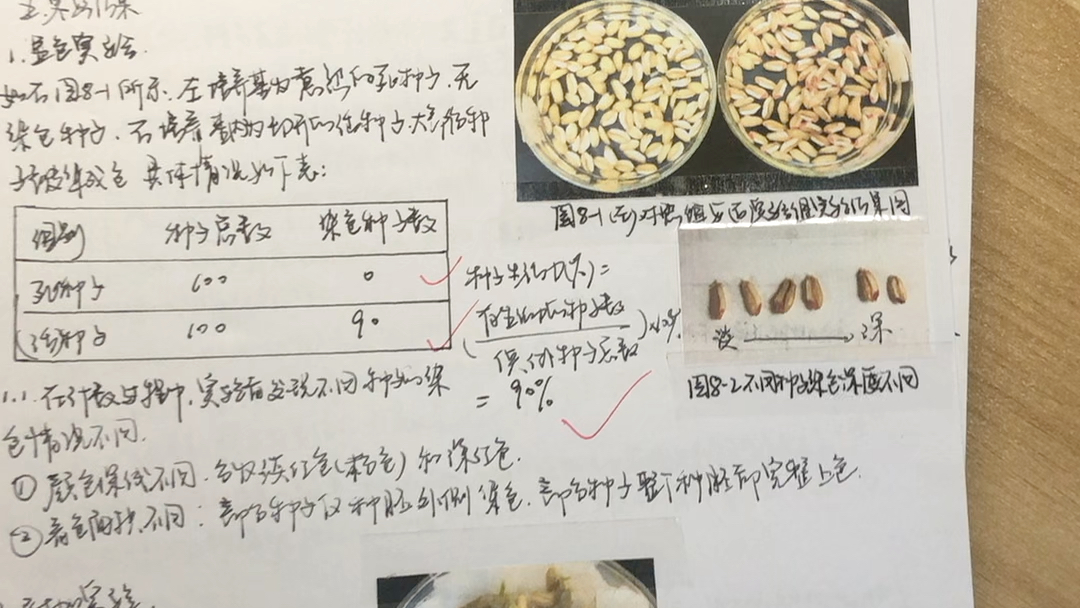 1.显色实验.
如右图8-1所示.左培养基为煮沸的死种子,无
染色种子.右培养基内为切开的活种子,大部份种
子被染成色 具体情况如下表:
组别 种子总数 染色种子数
死种子 100 0
活种子 100 90
种子生活力(%)=
(有生活力种子数/供价种子总数)×100%
= 90%
图8-1(左)对照组与(右)实验组实验结果图
淡 深
图8-2不同种子染色深度不同
1.1.在计数过程中,实验者发现不同种子的染
色情况不同.
①颜色深浅不同.分为淡红色(粉色)和深红色.
②着色面积不同:部分种子仅种胚外侧染色.部分种子整个种胚即完整上色.